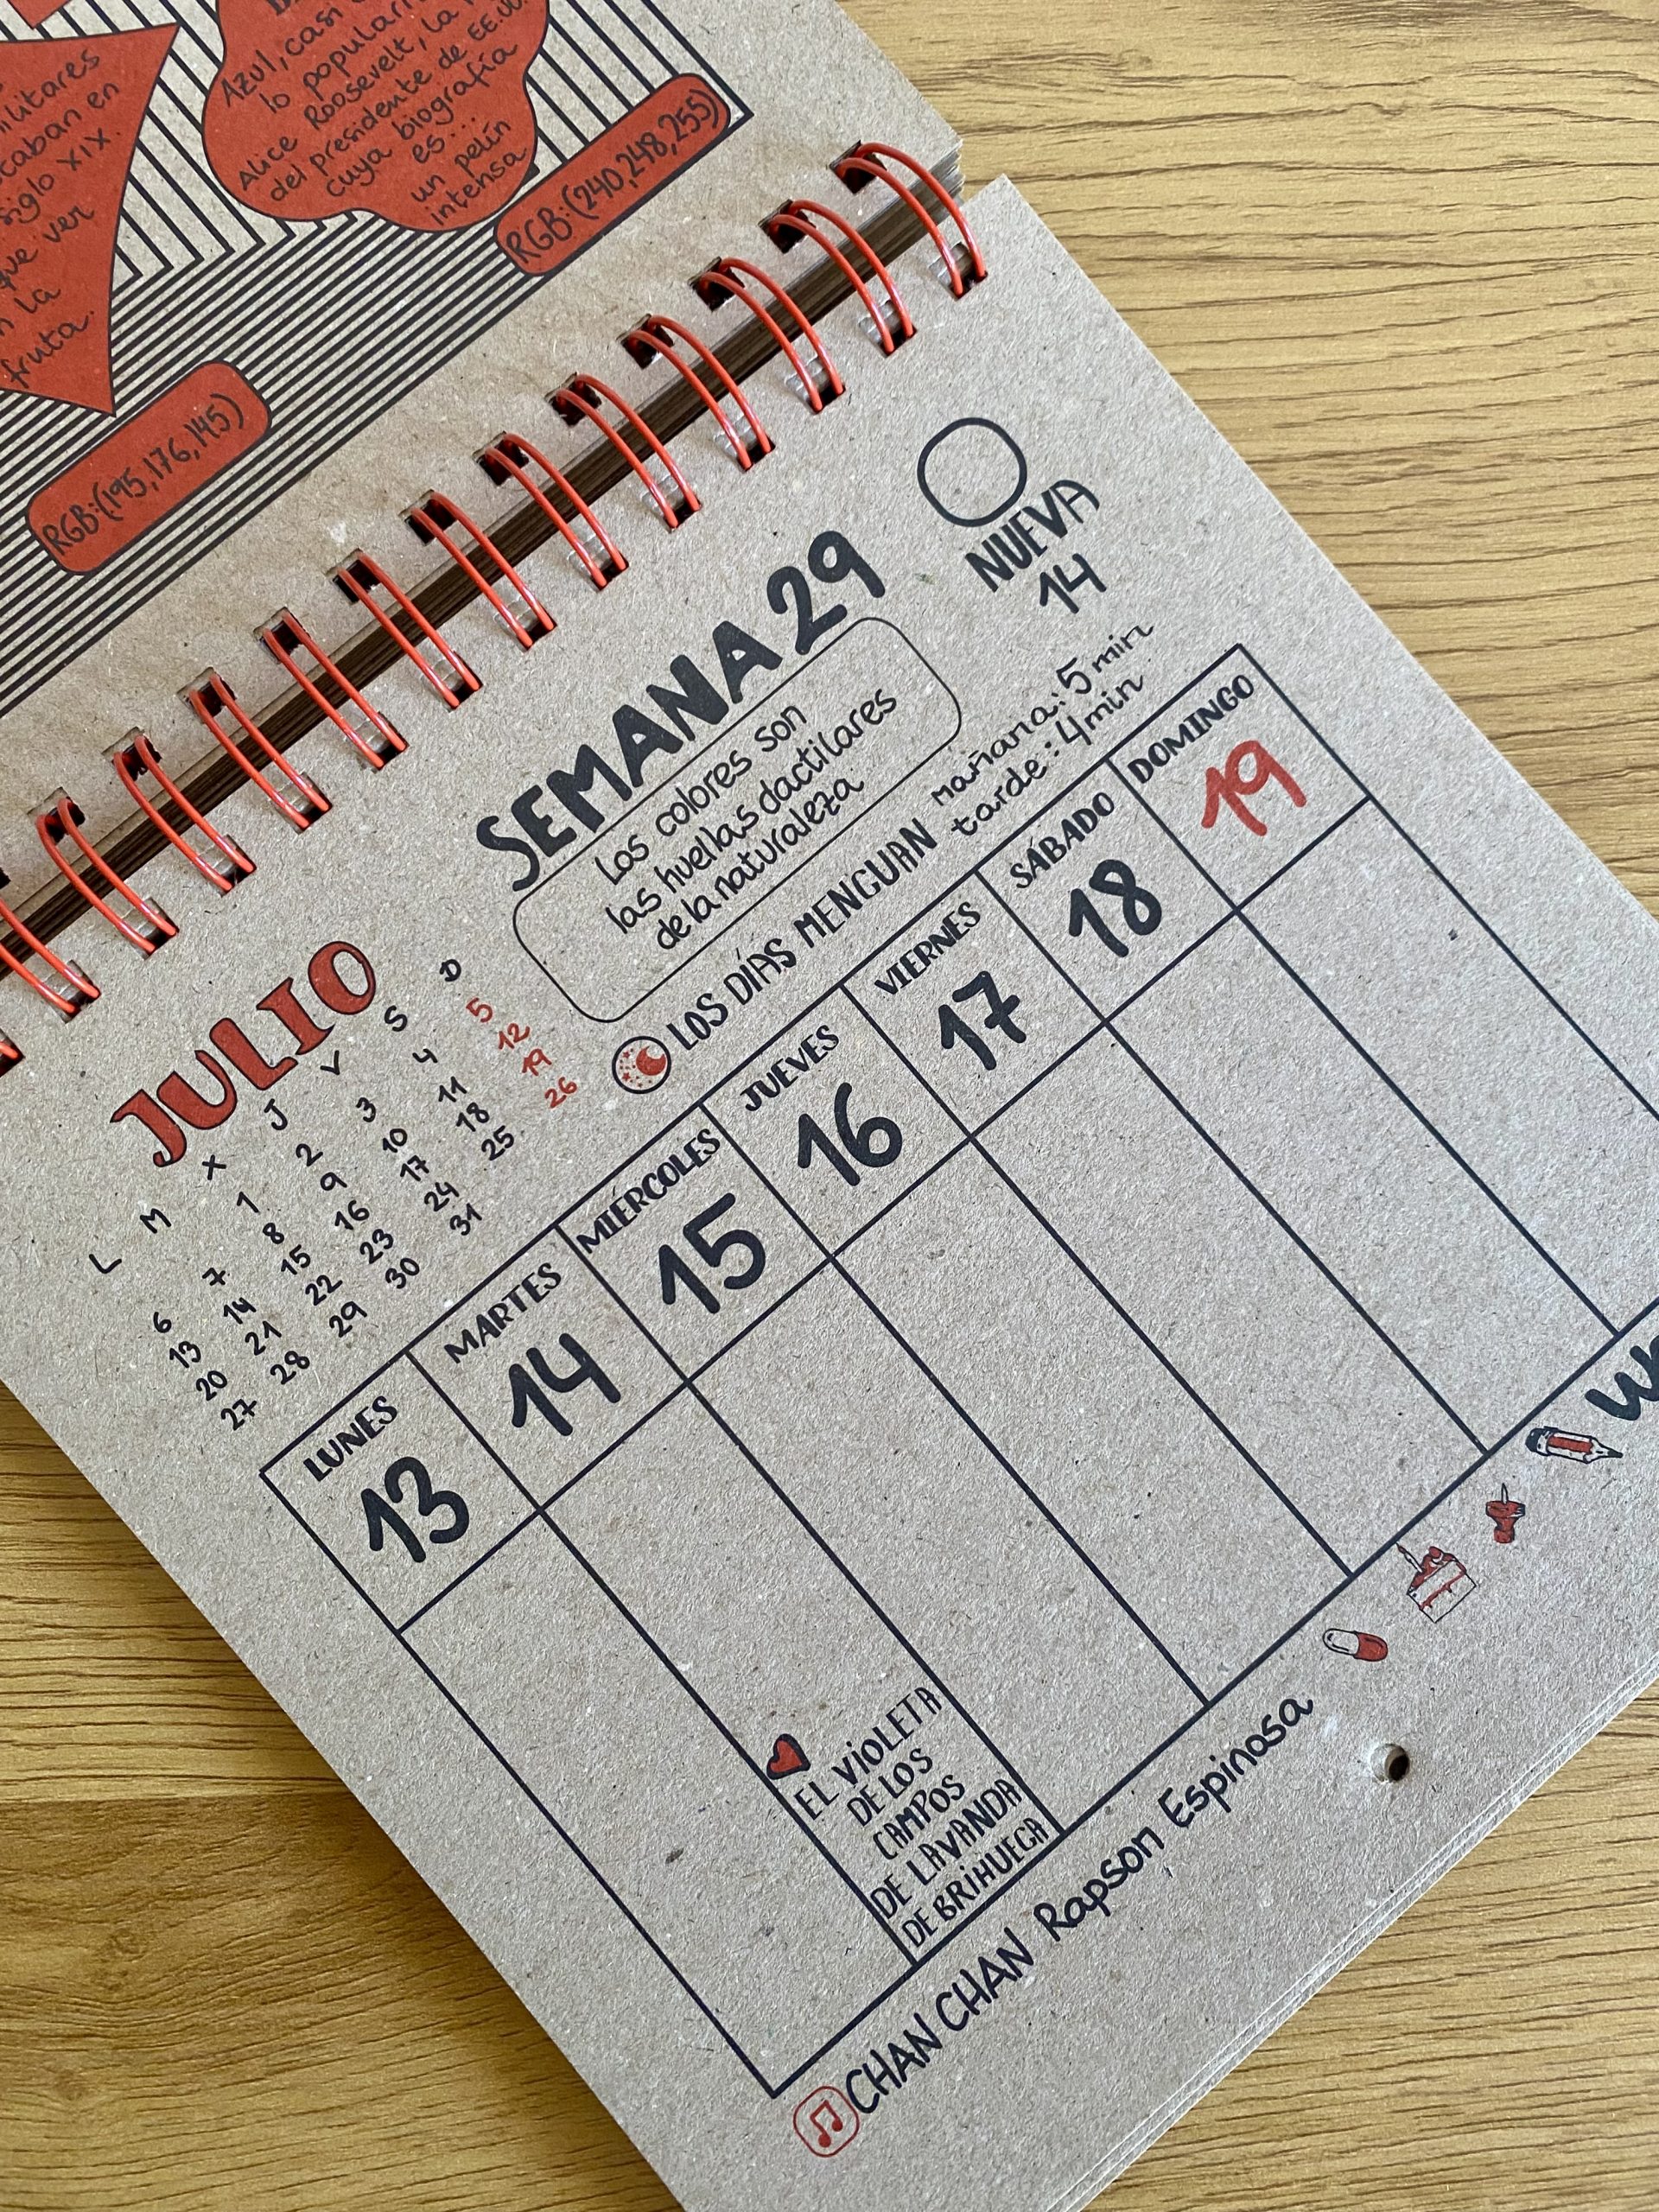 caban en
siglo XIX.
que ver
la
fruta.
RGB:(195,176,145)
Azul, casi
lo
Alice Roosevelt, la
del presidente de EE.UU.
cuya biografía
es...
un pelín
intensa
RGB:(240,248,255)
JULIO
L M X J V S D
1 2 3 4 5
6 7 8 9 10 11 12
13 14 15 16 17 18 19
20 21 22 23 24 25 26
27 28 29 30 31
SEMANA 29
Los colores son
las huellas dactilares
de la naturaleza
NUEVA
14
LOS DÍAS MENGUAN
mañana: 5 min
tarde: 4 min
LUNES MARTES MIÉRCOLES JUEVES VIERNES SÁBADO DOMINGO
13 14 15 16 17 18 19
EL VIOLETA
DE LOS
CAMPOS
DE LAVANDA
DE BRIHUEGA
CHAN CHAN Rapson Espinosa